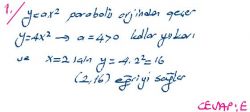 1/ y=ax² parabolü orjinden geçer
y=4x² → a=4>0 kollar yukarı
ve x=2 için y=4.2²=16
(2,16) eğriyi sağlar
CEVAP:E